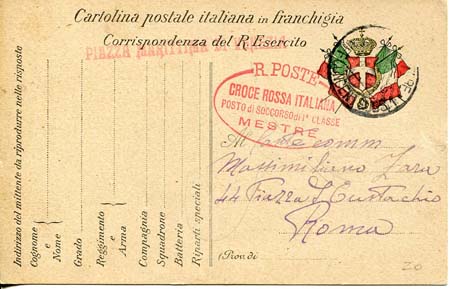 Cartolina postale italiana in franchigia
Corrispondenza del R. Esercito
PIAZZA MARITTIMA DI VENEZIA
R. POSTE
CROCE ROSSA ITALIANA
POSTO di SOCCORSO di 1ª CLASSE
MESTRE
Al
comm
Massimiliano Zara
44 Piazza S. Eustachio
Roma
(Prov. di
Indirizzo del mittente da riprodurre nelle risposte
Cognome e Nome
Grado
Reggimento e Arma
Compagnia
Squadrone
Batteria
Riparti speciali
20